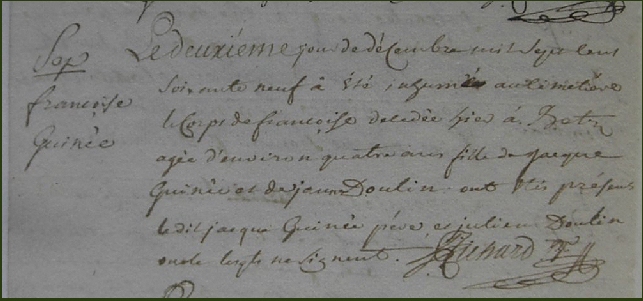 Sep
françoise
Guinée
Le deuxiéme jour de décembre mil sept cent
soixante neuf à été inhumée au cimetiére
le corps de françoise decedée hier à
agée d'environ quatre ans fille de jacque
Guinée et de jeanne Doulin ont étés présens
le dit jacque Guinée pére et julien Doulin
oncle lesqls ne signent. Richard